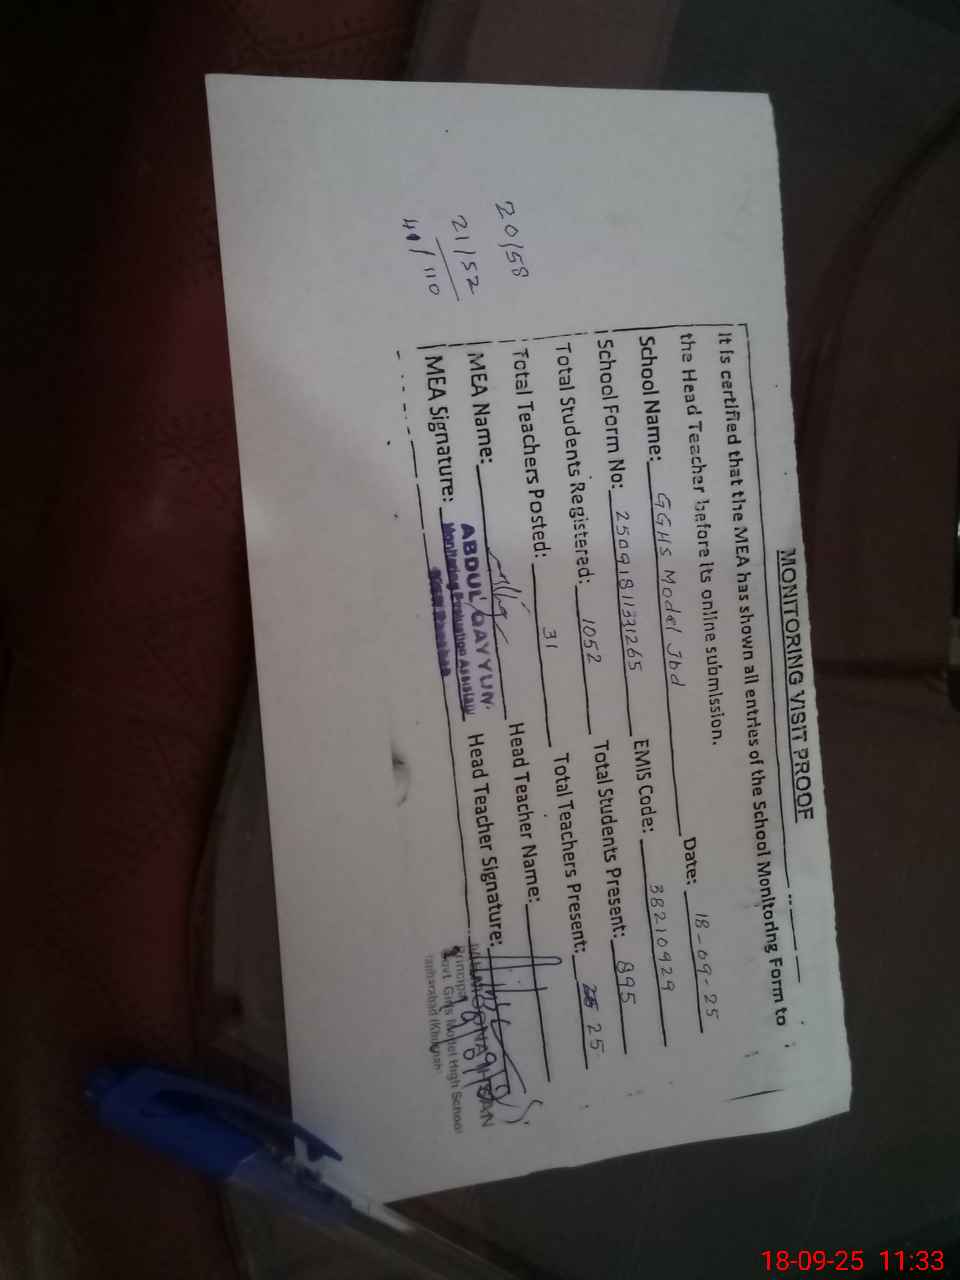 MONITORING VISIT PROOF
It is certified that the MEA has shown all entries of the School Monitoring Form to
the Head Teacher before its online submission.
School Name: GGHS Model Jbd Date: 18-09-25
School Form No: 2509181131265 EMIS Code: 38210929
Total Students Registered: 1052 Total Students Present: 895
Total Teachers Posted: 31 Total Teachers Present: 25
MEA Name: Head Teacher Name:
MEA Signature: Head Teacher Signature:
ABDUL QAYYUM
Monitoring Evaluation Assistant
Principal
Govt. Girls Model High School
20/58
21/52
41/110
18-09-25 11:33